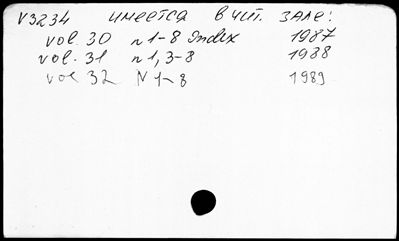 V3234 имеется в чит. зале:
vol. 30 n 1-8 Index 1987
vol. 31 n 1, 3-8 1988
vol 32 N 1-8 1989